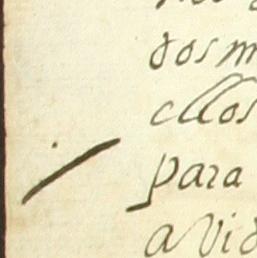 dos m
ellos
para
a vid